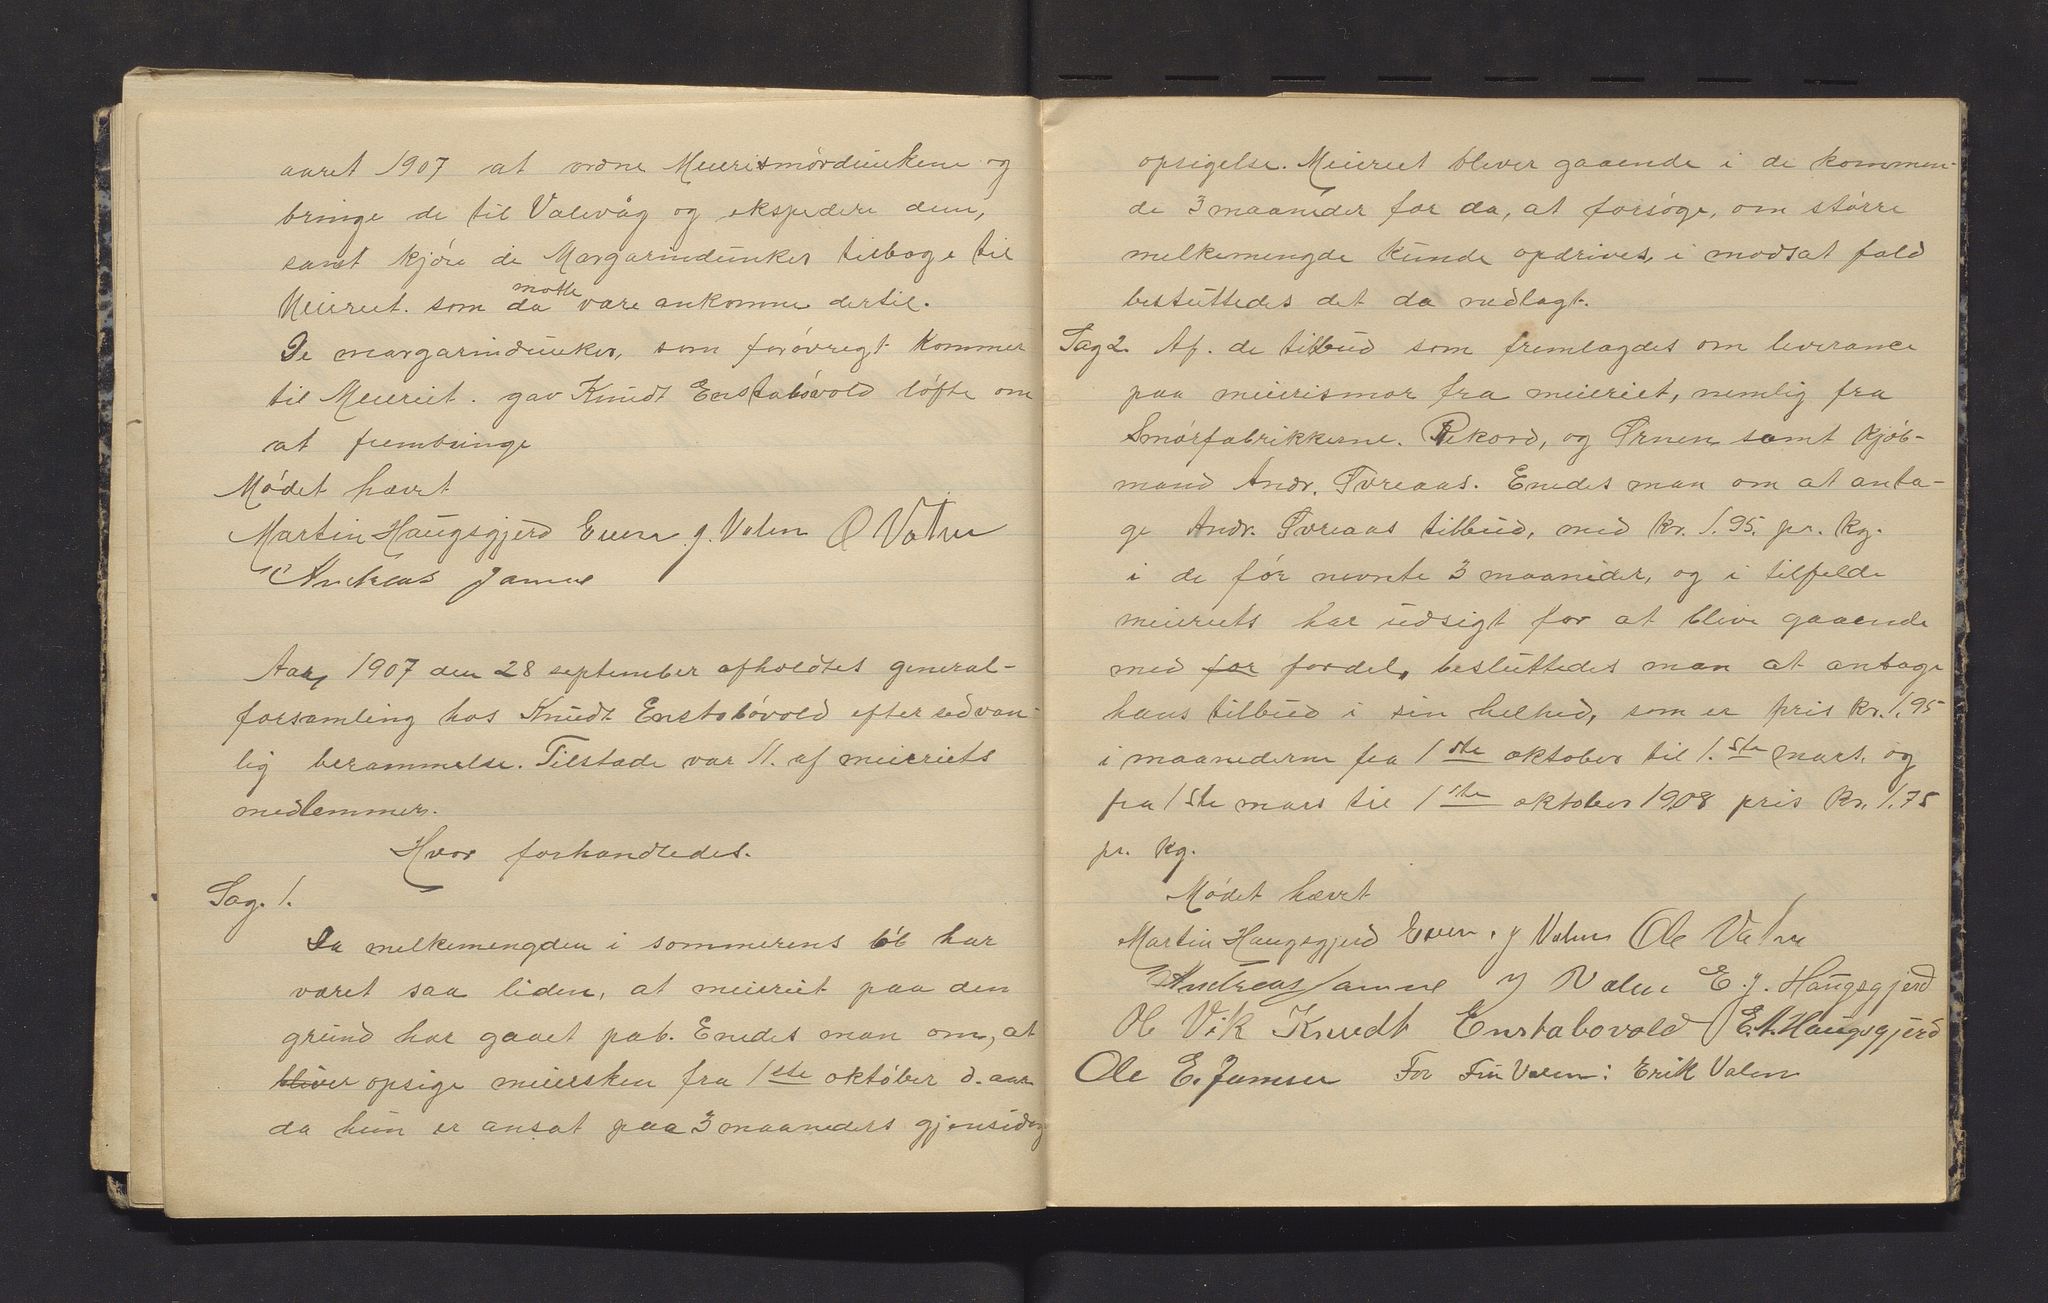 aaret 1907 at ordne Meierismördunkene og
bringe de til Valevåg og ekspedere dem,
samt kjöre de Margarindunker tilbage til
Meieriet. som da motte være ankomne dertil.
De margarindunker, som forövregt kommer
til Meieriet. gav Knudt Enstabövold löfte om
at frembringe
Mödet hævet
Martin Haugsgjerd Even. J. Valen O Valen
Andreas Jamne
Aar, 1907 den 28 september afholdtes general-
forsamling hos Knudt Enstabövold efter sedvan-
lig berammelse. Tilstæde var 11. af meieriets
medlemmer.
Hvor forhandledes.
Sag. 1.
Da melkemengden i sommerens löb har
været saa liden, at meieriet paa den
grund har gaaet pab. Enedes man om, at
bliver opsige meiersken fra 1ste oktöber d. aar
da hun er ansat paa 3 maaneders gjensidig
opsigelse. Meieriet bliver gaaende i de kommen-
de 3 maaneder for da, at forsöge, om större
melkemengde kunde opdrives, i modsat fald
besluttedes det da nedlagt.
Sag 2. Af. de tilbud som fremlagdes om leverance
paa meierismör fra meieriet, nemlig fra
Smörfabrikkerne. Rekord, og Örnen samt kjöb-
mand Andr. Tvreaas. Enedes man om at anta-
ge Andr. Tvreaas tilbud, med kr. 1.95. pr. kg.
i de för nevnte 3 maaneder, og i tilfelde
meieriets har udsigt for at blive gaaende
med for fordel, besluttedes man at antage
hans tilbud i sin helhed, som er pris kr. 1.95
i maanederne fra 1ste oktober til 1.ste mars. og
fra 1ste mars til 1ste oktober 1908 pris kr. 1.75
pr. kg.
Mödet hævet
Martin Haugsgjerd Even. J Valen Ole Valen
Andreas Jamne J Valen E. J. Haugsgjerd
Ole Vik Knudt Enstabovold E. A. Haugsgjerd
Ole E. Jamsen For Valen: Erik Valen